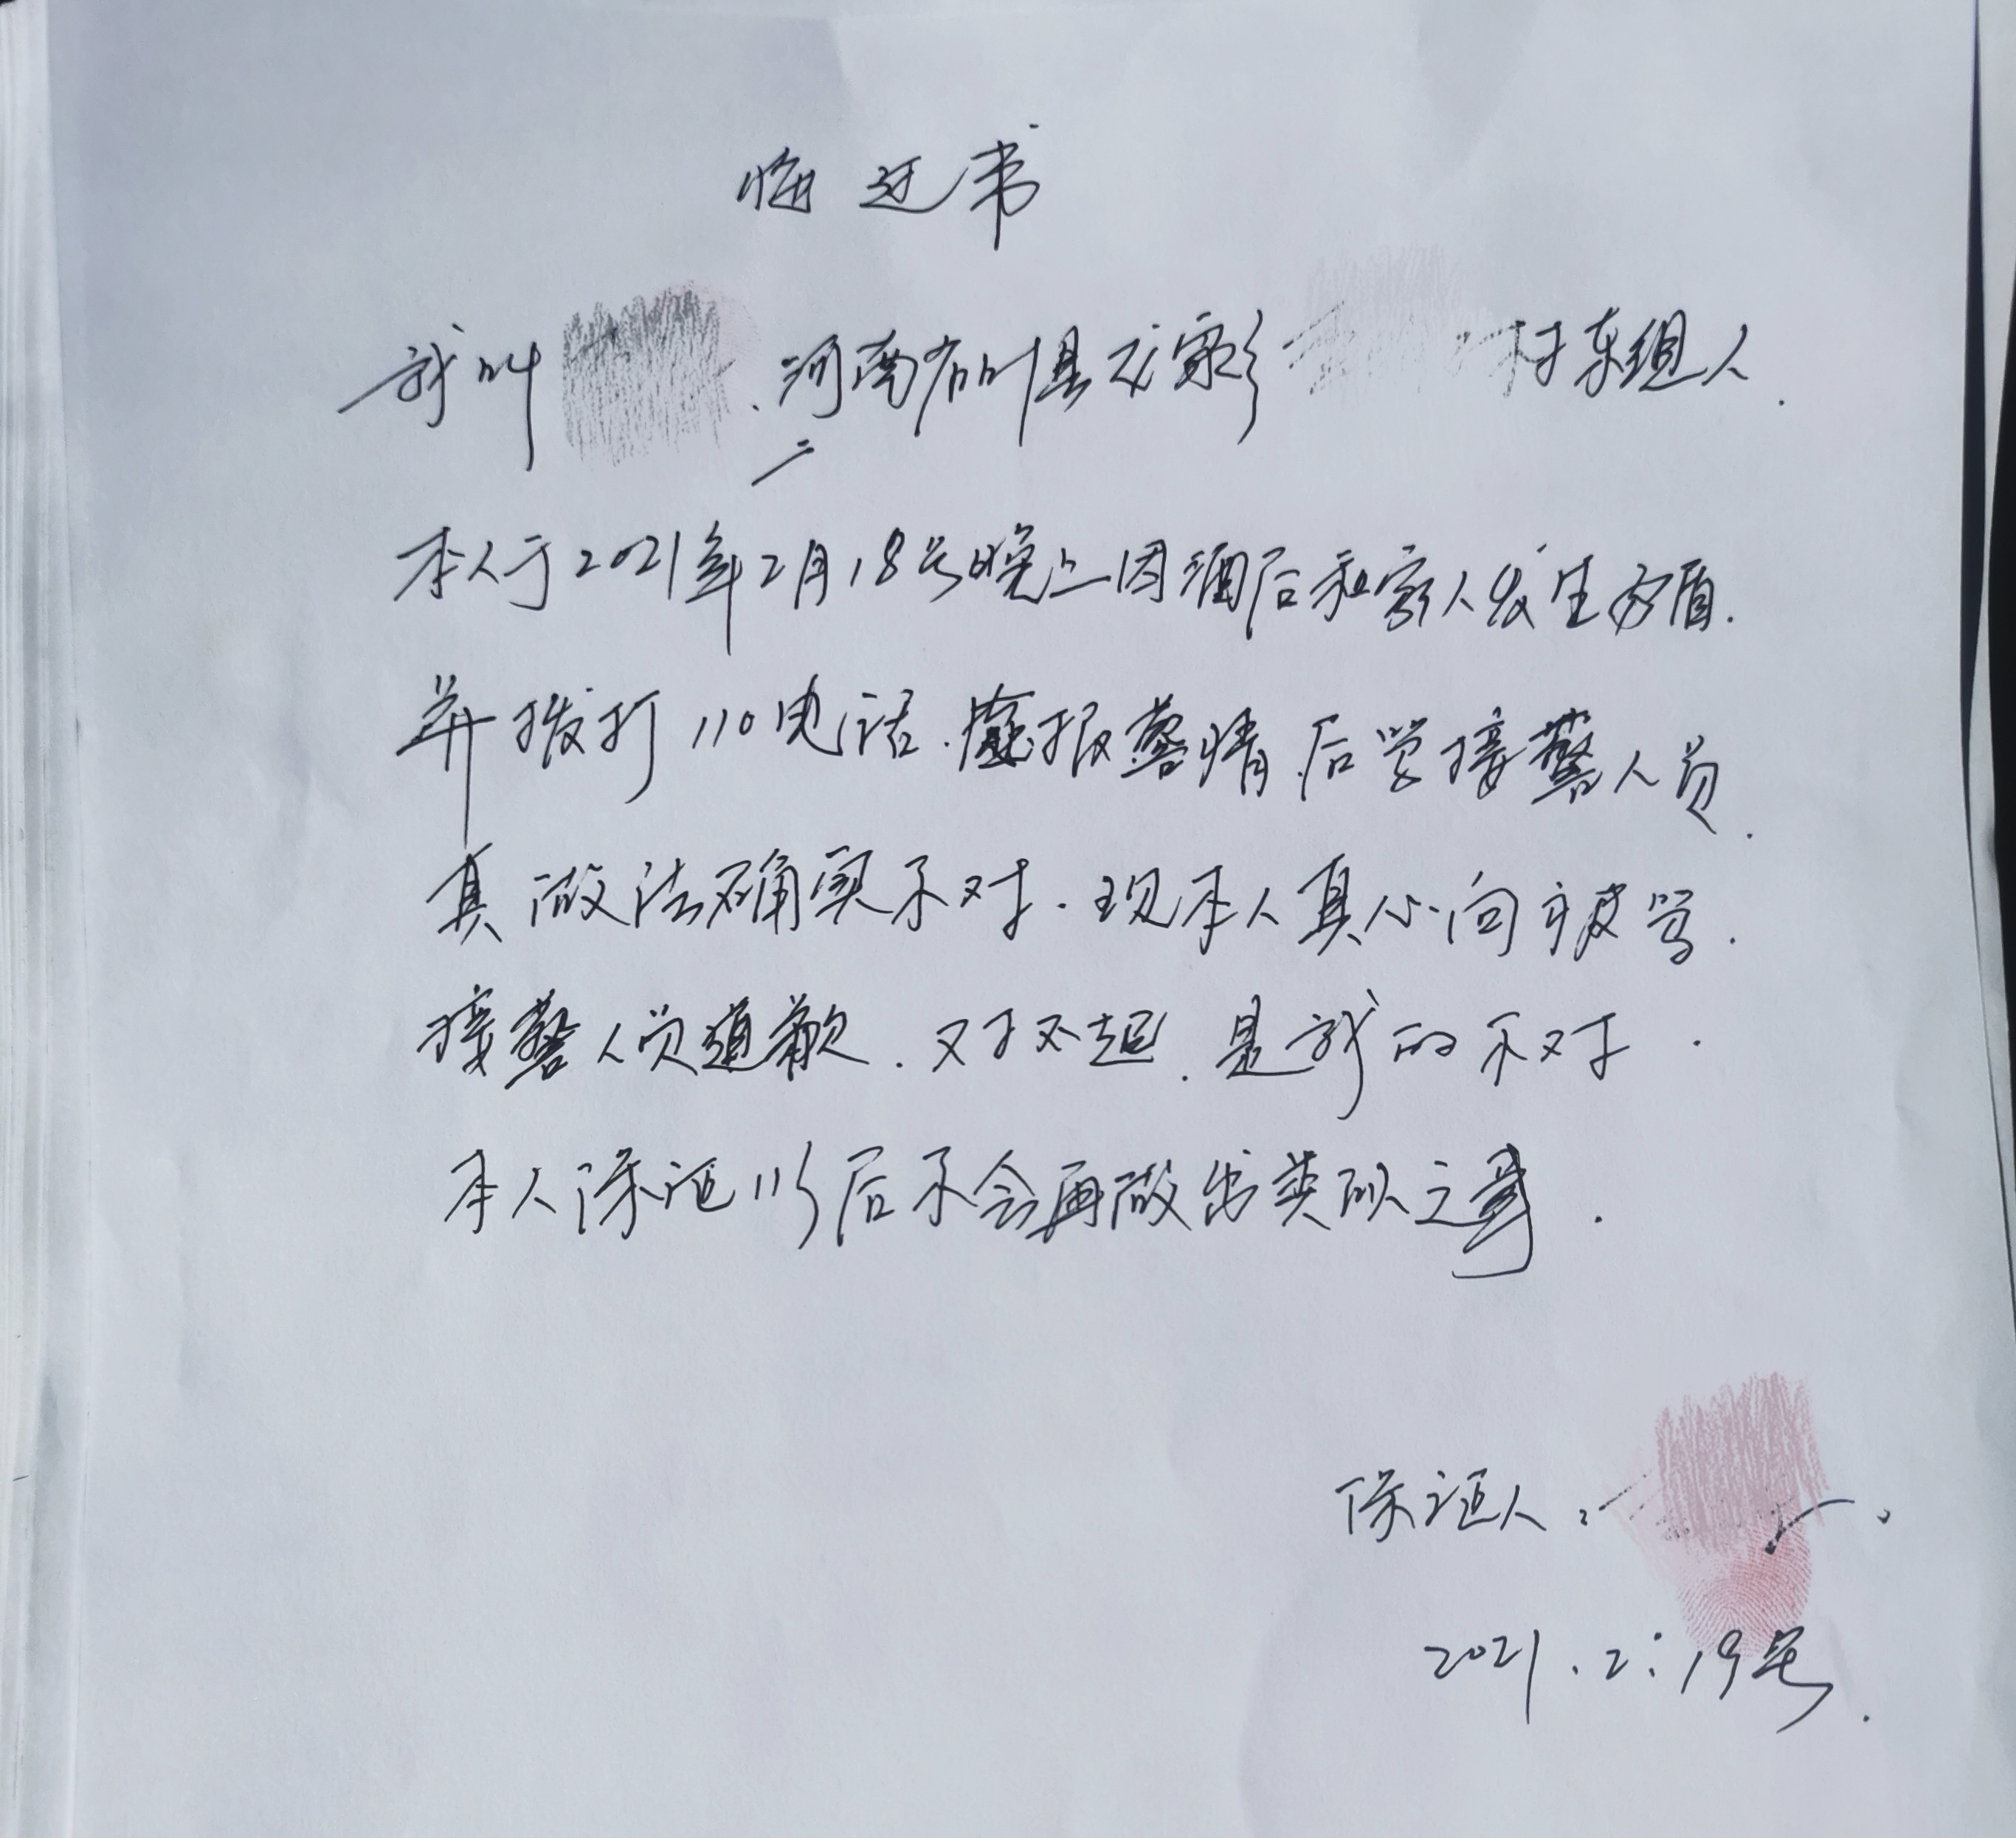 悔过书
我叫 . 河南省叶县龙泉乡 村东组人.
本人于2021年2月18号晚上因酒后和家人发生矛盾.
并拨打110电话.虚报警情.后骂接警人员.
其做法确实不对.现本人真心向被骂.
接警人员道歉.对不起.是我的不对.
本人保证以后不会再做出类似之事.
保证人:
2021.2.19号.